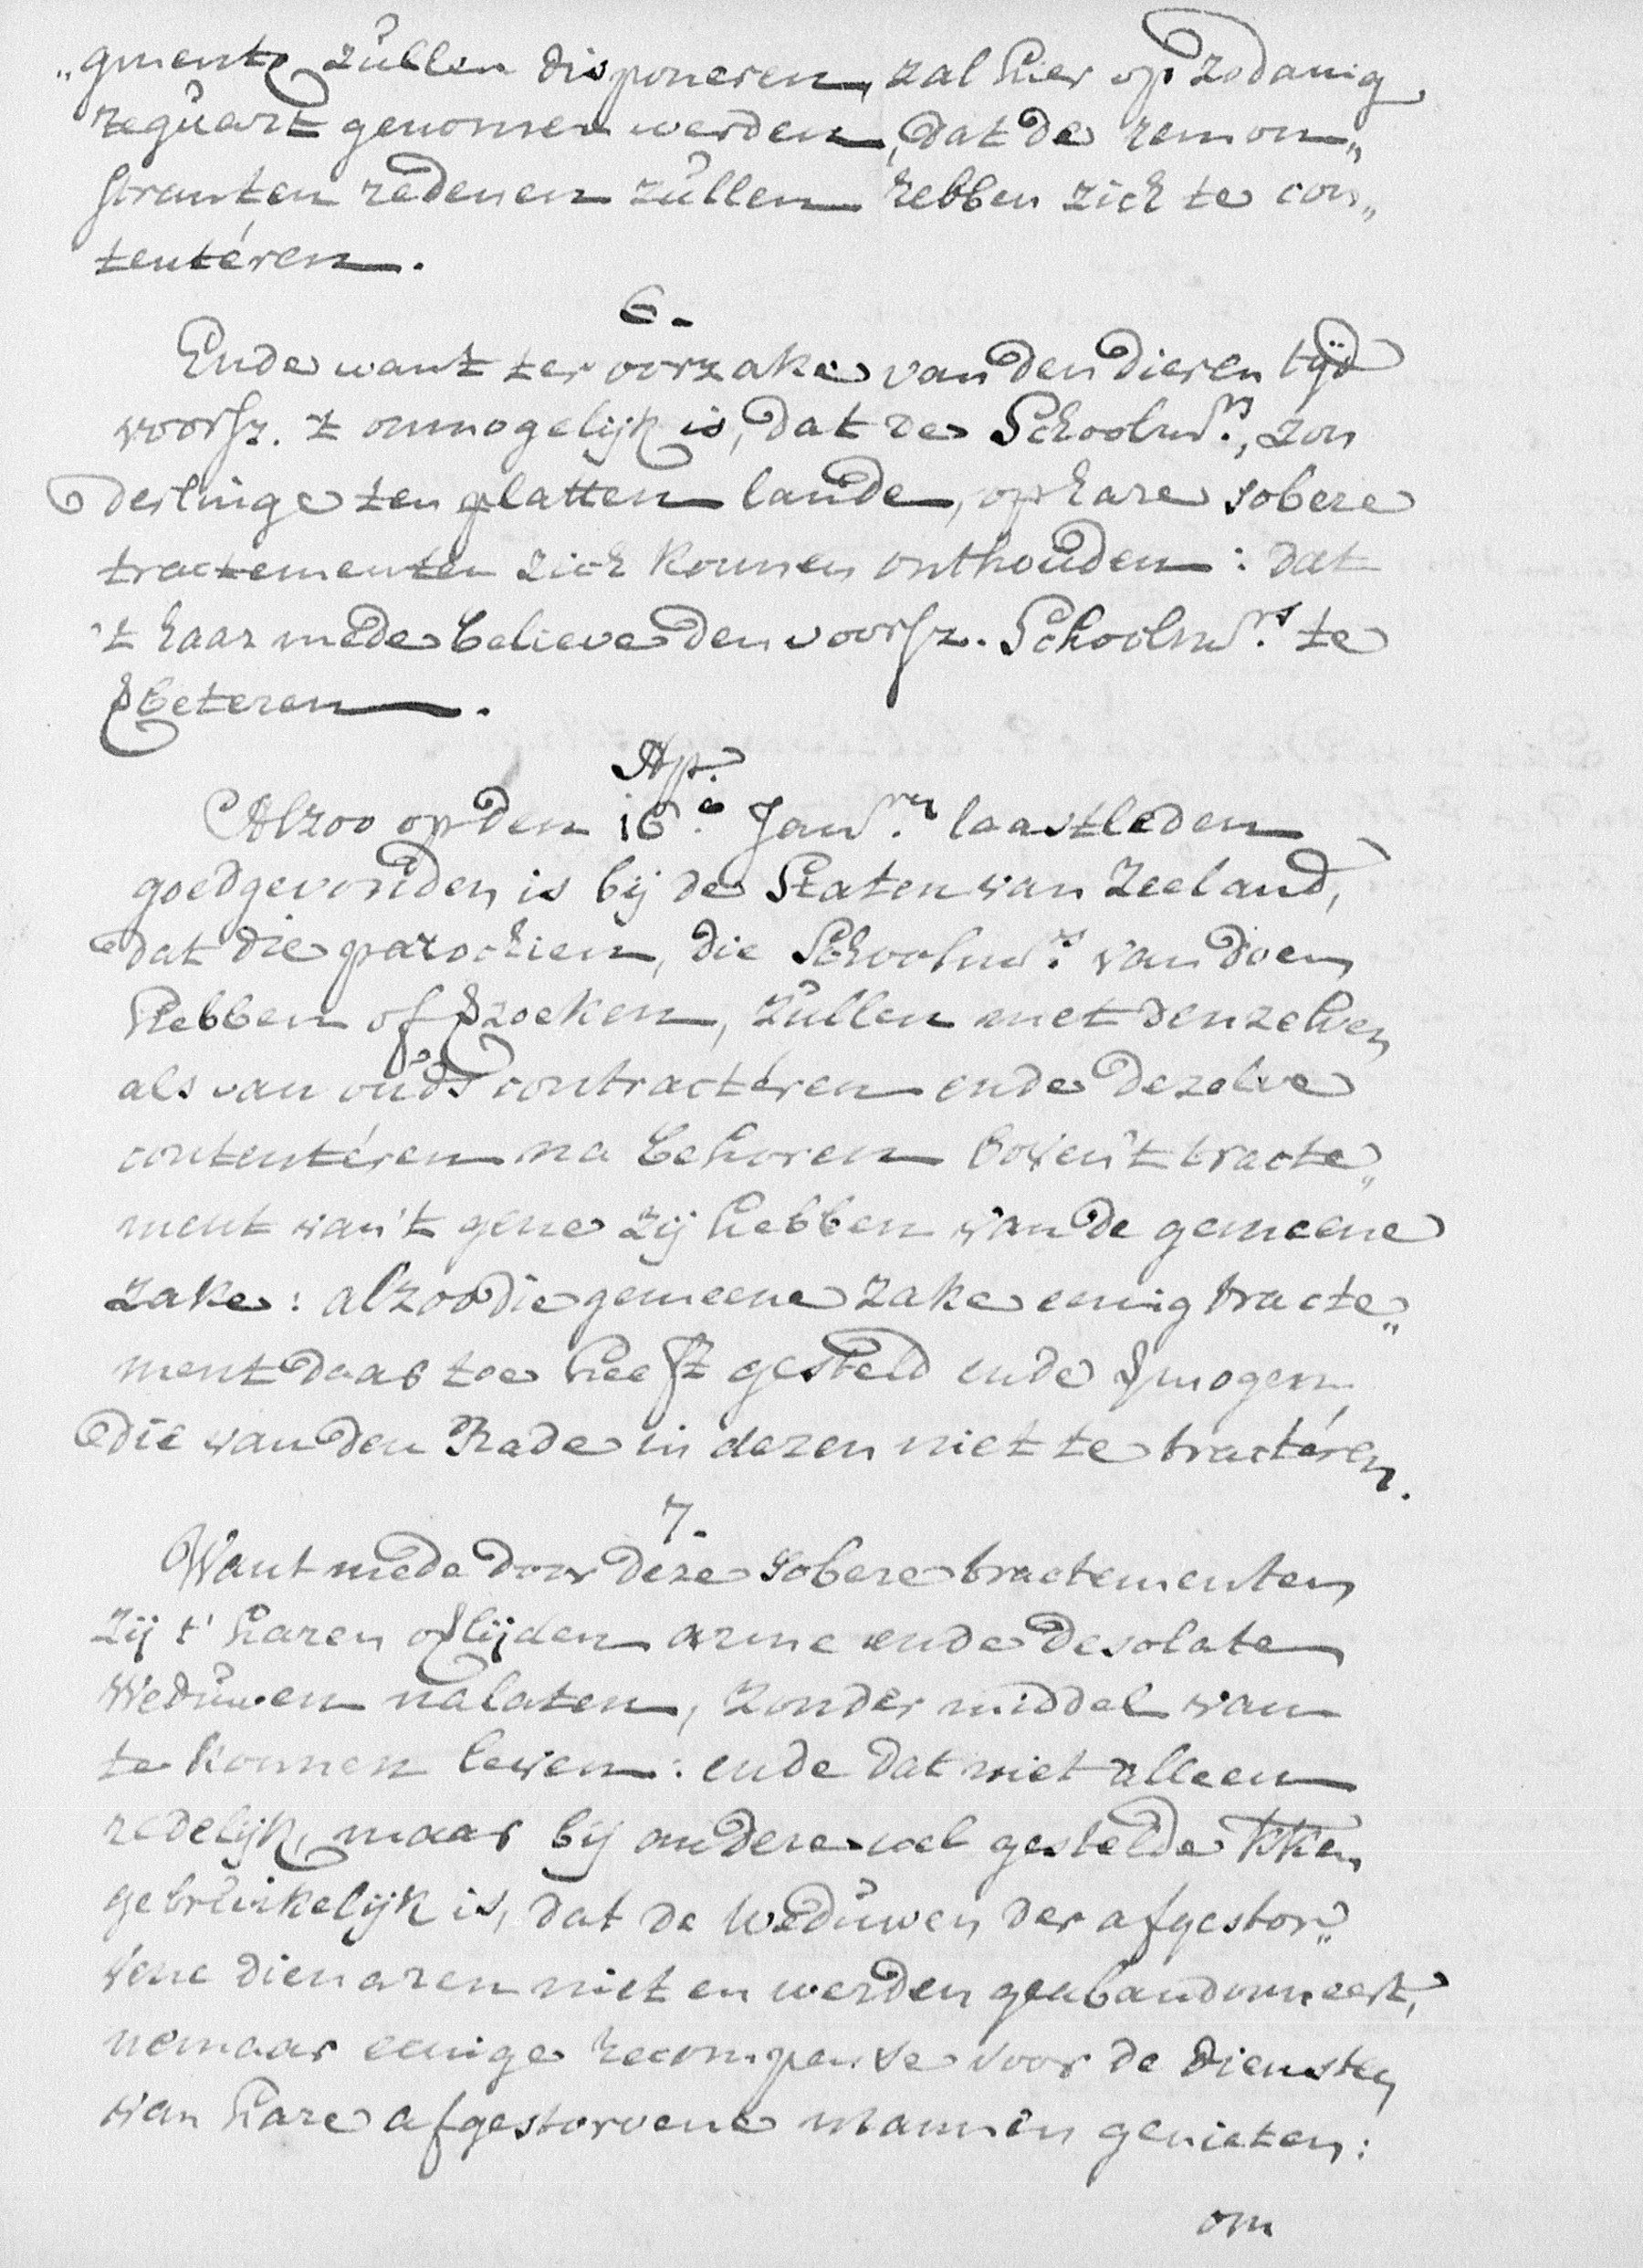 „gmente zullen disponeren, zal hier op zodanig
reguart genomen werden, dat de remon„
stranten redenen zullen hebben zich te con„
tentéren.
6.
Ende want ter oorzake van den dieren tijd
voorsz. 't onmogelijk is, dat de Schoolmrs, zon
derlinge ten platten lande, op hare sobere
tractementen zich konnen onthouden: dat
't haar mede believe den voorsz. Schoolmrs. te
beteren.
Ap.
Alzoo op den 16e. Janry. laastleden
goedgevonden is bij de Staten van Zeeland,
dat die parochien, die Schoolmrs. van doen
hebben of zoeken, zullen met denzelven
als van ouds contractéren ende dezelve
contentéren na behoren boven 't tracte„
ment van 't gene zij hebben van de gemeene
zake: alzoo die gemeene zake eenig tracte„
ment daar toe heeft gesteld ende mogen
die van den Rade in dezen niet te tractéren.
7.
Want mede door deze sobere tractementen
zij t' haren oflijden arme ende desolate
Weduwen nalaten, zonder middel van
te konnen leven: ende dat niet alleen
redelijk, maar bij andere wel gestelde kken
gebruikelijk is, dat de Weduwen der afgestor„
vene dienaren niet en werden geabandonneert,
nemaar eenige recompense voor de diensten
van hare afgestorvene mannen genieten:
om